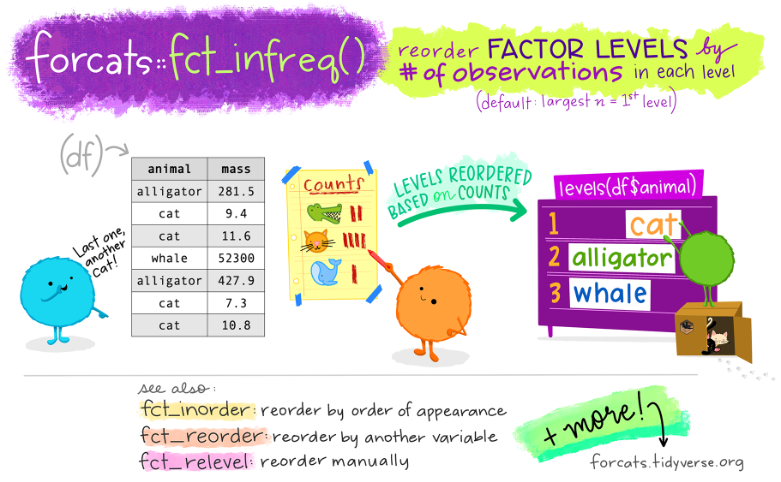 forcats::fct_infreq()
reorder FACTOR LEVELS by
# of observations in each level
(default: largest n = 1st level)
(df)
animal mass
alligator 281.5
cat 9.4
cat 11.6
whale 52300
alligator 427.9
cat 7.3
cat 10.8
Last one,
another
cat!
Counts
LEVELS REORDERED
BASED on COUNTS
levels(df$animal)
1 cat
2 alligator
3 whale
see also:
fct_inorder: reorder by order of appearance
fct_reorder: reorder by another variable
fct_relevel: reorder manually
+ more!
forcats.tidyverse.org